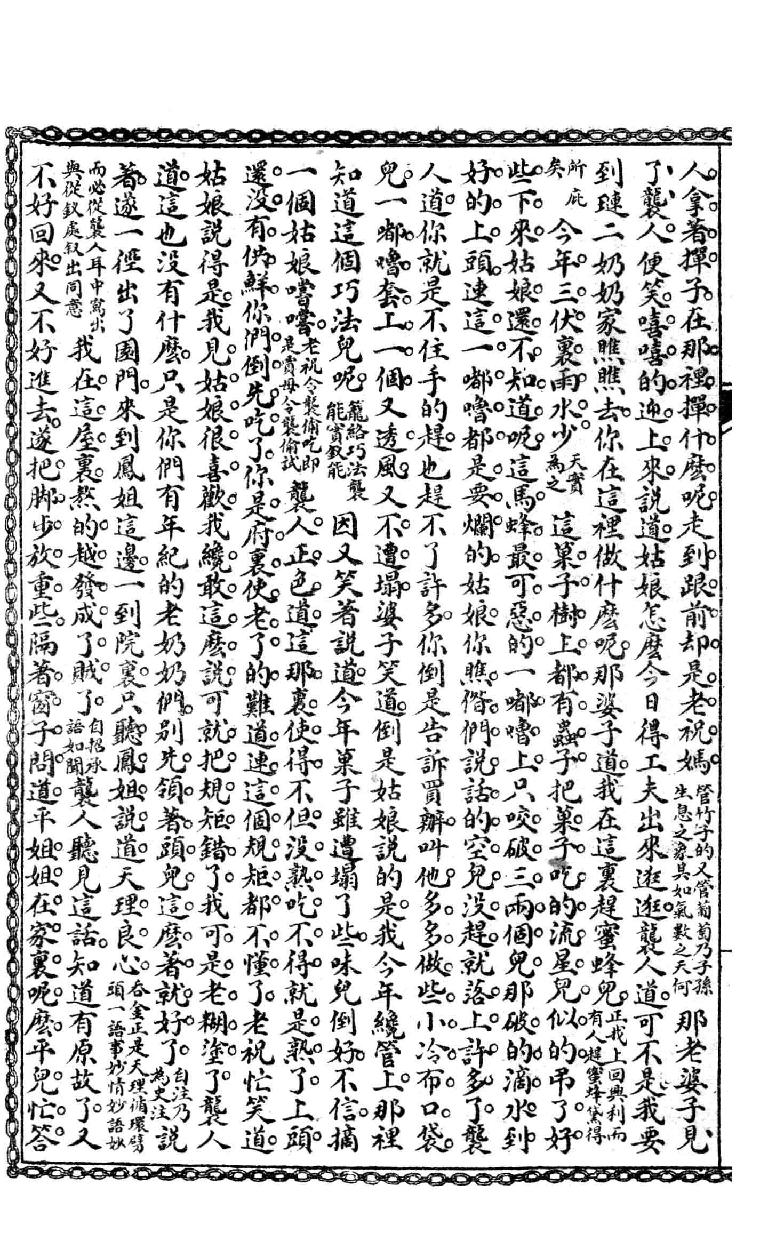 人拿著撣子在那裡撣什麼呢走到跟前却是老祝媽管竹子的又管葡萄乃子孫生息之象其如氣數之天何那老婆子見
了襲人便笑嘻嘻的迎上來說道姑娘怎麼今日得工夫出來逛逛襲人道可不是我要
到璉二奶奶家瞧瞧去你在這裡做什麼呢那婆子道我在這裏趕蜜蜂兒正找上回興利而有人趕蜜蜂黛得
所庇矣今年三伏裏雨水少天實為之這菓子樹上都有蟲子把菓子吃的流星兒似的弔了好
些下來姑娘還不知道呢這馬蜂最可惡的一嘟嚕上只咬破三兩個兒那破的滴水到
好的上頭連這一嘟嚕都是要爛的姑娘你瞧偺們說話的空兒沒趕就落上許多了襲
人道你就是不住手的趕也趕不了許多你倒是告訴買辦叫他多多做些小冷布口袋
兒一嘟嚕套上一個又透風又不遭塌婆子笑道倒是姑娘說的是我今年纔管上那裡
知道這個巧法兒呢籠絡巧法襲能寶釵能因又笑著說道今年菓子雖遭塌了些味兒倒好不信摘
一個姑娘嚐嚐老祝令襲偷吃即是賈母令襲偷試襲人正色道這那裏使得不但沒熟吃不得就是熟了上頭
還沒有供鮮你們倒先吃了你是府裏使老了的難道連這個規矩都不懂了老祝忙笑道
姑娘說得是我見姑娘很喜歡我纔敢這麼說可就把規矩錯了我可是老糊塗了襲人
道這也沒有什麼只是你們有年紀的老奶奶們別先領著頭兒這麼著就好了自注乃為史注說
著遂一徑出了園門來到鳳姐這邊一到院裏只聽鳳姐說道天理良心吞金正是天理循環劈頭一語事妙情妙語妙
而必從襲人耳中寫出與從釵處敘出同意我在這屋裏熬的越發成了賊了自招承語如聞襲人聽見這話知道有原故了又
不好回來又不好進去遂把脚步放重些隔著窗子問道平姐姐在家裏呢麼平兒忙答